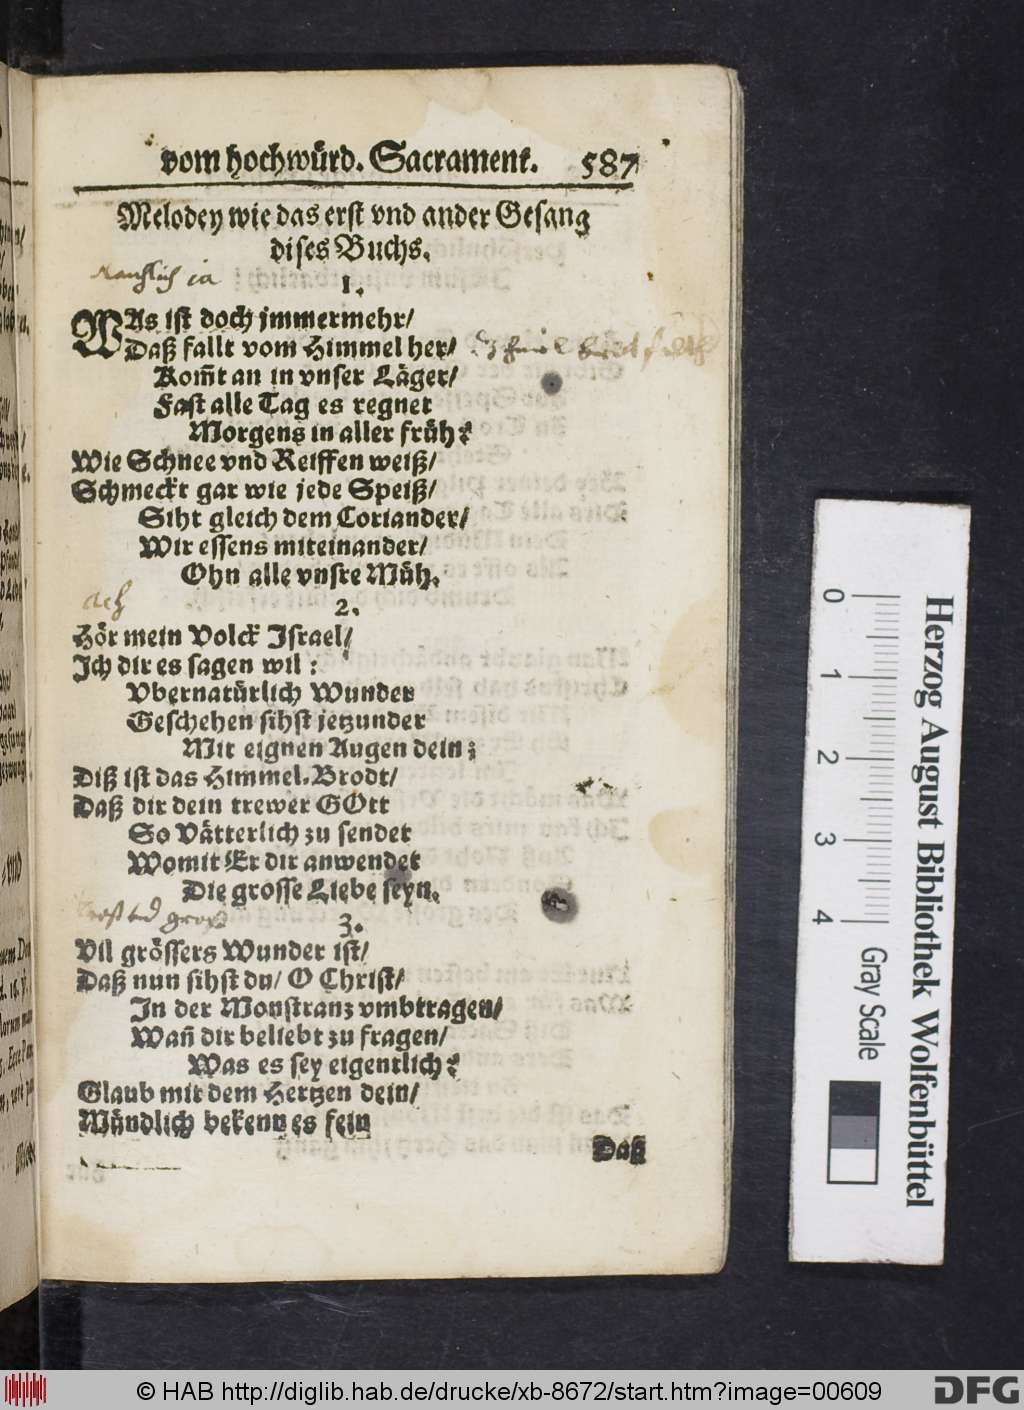 vom hochwürd. Sacrament. 587
Melodey wie das erst vnd ander Gesang
dises Buchs.
1.
WAs ist doch jmmermehr/
Daß fallt vom Himmel her/
Kom̃t an in vnser Läger/
Fast alle Tag es regnet
Morgens in aller früh?
Wie Schnee vnd Reiffen weiß/
Schmeckt gar wie jede Speiß/
Siht gleich dem Coriander/
Wir essens miteinander/
Ohn alle vnsre Müh.
ach
2.
Hör mein Volck Israel/
Ich dir es sagen wil:
Vbernatürlich Wunder
Geschehen sihst jetzunder
Mit eignen Augen dein;
Diß ist das Himmel-Brodt/
Daß dir dein trewer GOtt
So Vätterlich zu sendet
Womit Er dir anwendet
Die grosse Liebe seyn.
3.
Vil grössers Wunder ist/
Daß nun sihst du/ O Christ/
In der Monstranz vmbtragen/
Wañ dir beliebt zu fragen/
Was es sey eigentlich?
Glaub mit dem Hertzen dein/
Mündlich bekenn es fein
Daß
0 1 2 3 4
Gray Scale
Herzog August Bibliothek Wolfenbüttel
© HAB http://diglib.hab.de/drucke/xb-8672/start.htm?image=00609
DFG